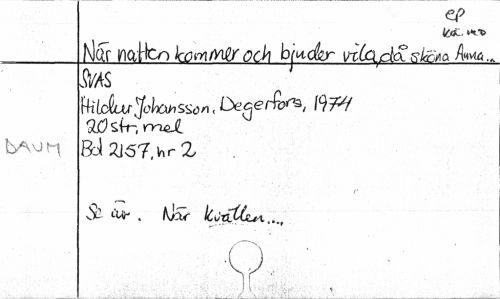 ep
När natten kommer och bjuder vila, då sköna Anna...
SVAS
Hildur Johansson, Degerfors, 1974
20 str, mel
DAUM Bd 2157, nr 2
Se är. När kvällen....